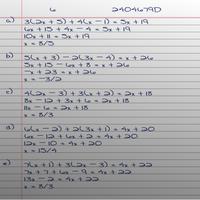 6 2404679D
a) 3(2x + 5) + 4(x − 1) = 5x + 19
6x + 15 + 4x − 4 = 5x + 19
10x + 11 = 5x + 19
x = 8/5
b) 5(x + 3) − 2(3x − 4) = x + 26
5x + 15 − 6x + 8 = x + 26
−x + 23 = x + 26
x = −3/2
c) 4(2x − 3) + 3(x + 2) = 2x + 18
8x − 12 + 3x + 6 = 2x + 18
11x − 6 = 2x + 18
x = 8/3
d) 6(x − 2) + 2(3x + 1) = 4x + 20
6x − 12 + 6x + 2 = 4x + 20
12x − 10 = 4x + 20
x = 15/4
e) 7(x + 1) + 3(2x − 3) = 4x + 22
7x + 7 + 6x − 9 = 4x + 22
13x − 2 = 4x + 22
x = 8/3